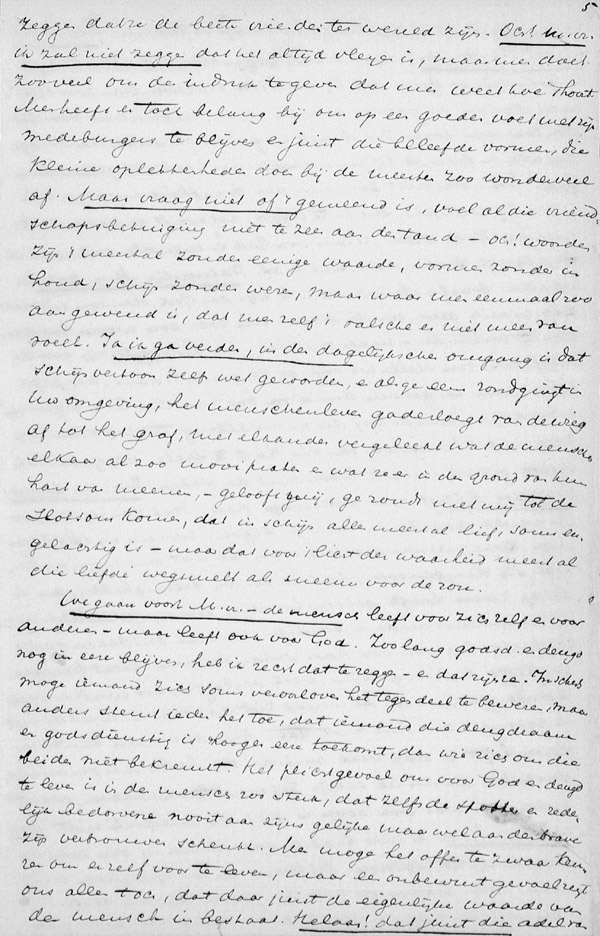 5
zegge dat ze de beste vrienden ter wereld zijn. Och! M.vr.
ik zal niet zegge dat het altijd vleyen is, maar men doet
zooveel om den indruk te geven dat men weet hoe 't hoort
Men heeft er toch belang bij om op een goeden voet met zijn
medeburgers te blijven en juist die beleefde vormen, die
kleine oplettendheden doen bij de meesten zoo wonderveel
af. Maar vraag niet of 't gemeend is, voel al die vriend-
schapsbetuiging niet te zeer aan den tand – och! woorden
zijn 't meestal zonder eenige waarde, vormen zonder in
houd, schijn zonder wezen, maar waar men eenmaal zoo
aan gewend is, dat men zelf 't valsche er niet meer van
voelt. Ja ik ga verder, in den dagelijkschen omgang is dat
schijnvertoon zelf wet geworden, en als ge eens rondgingt in
uw omgeving, het menschenleven gadesloegt van de wieg
af tot het graf, met elkander vergeleekt wat de menschen
elkaar al zoo mooi praten en wat ze er in den grond van hun
hart van meenen, – gelooft gerij, ge zoudt met mij tot de
slotsom komen, dat in schijn alles meestal lief, soms en-
gelachtig is – maar dat voor 't licht der waarheid meestal
die liefde wegsmelt als sneeuw voor de zon.
We gaan voort M.vr. – de mensch leeft voor zich zelf en voor
anderen – maar leeft ook voor God. Zoo lang godsd. en deugd
nog in eere blijven, heb ik recht dat te zeggen – en dat zijn ze. In schijn
moge iemand zich soms veroorloven het tegendeel te beweren, maar
anders stemt ieder het toe, dat iemand die deugdzaam
en godsdienstig is hooger eere toekomt, dan wie zich om die
beiden niet bekreunt. Het plichtgevoel om voor God en deugd
te leven is in den mensch zoo sterk, dat zelfs de spotter en rede
lijk bedorvene nooit aan zijns gelijke maar wel aan den brave
zijn vertrouwen schenkt. Men moge het offer te zwaar keu-
ren om er zelf voor te leven, maar een onbewust gevoel zegt
ons allen toch, dat daar juist de eigenlijke waarde van
den mensch in bestaat. Helaas! dat juist die adel van